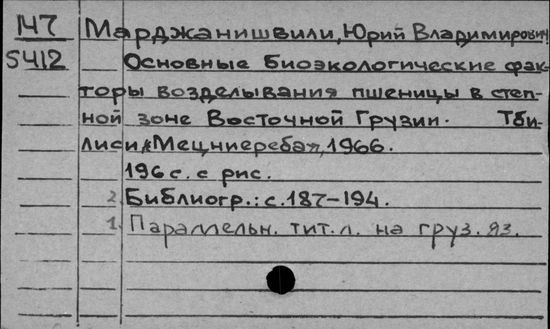 147 Марджанишвили, Юрий Владимирович
5412 Основные биоэкологические фак-
торы возделывания пшеницы в степ-
ной зоне Восточной Грузии. Тби-
лиси, "Мецниереба", 1966.
196 с. с рис.
2. Библиогр.: с. 187-194.
1. Параллельн. тит. л. на груз. яз.